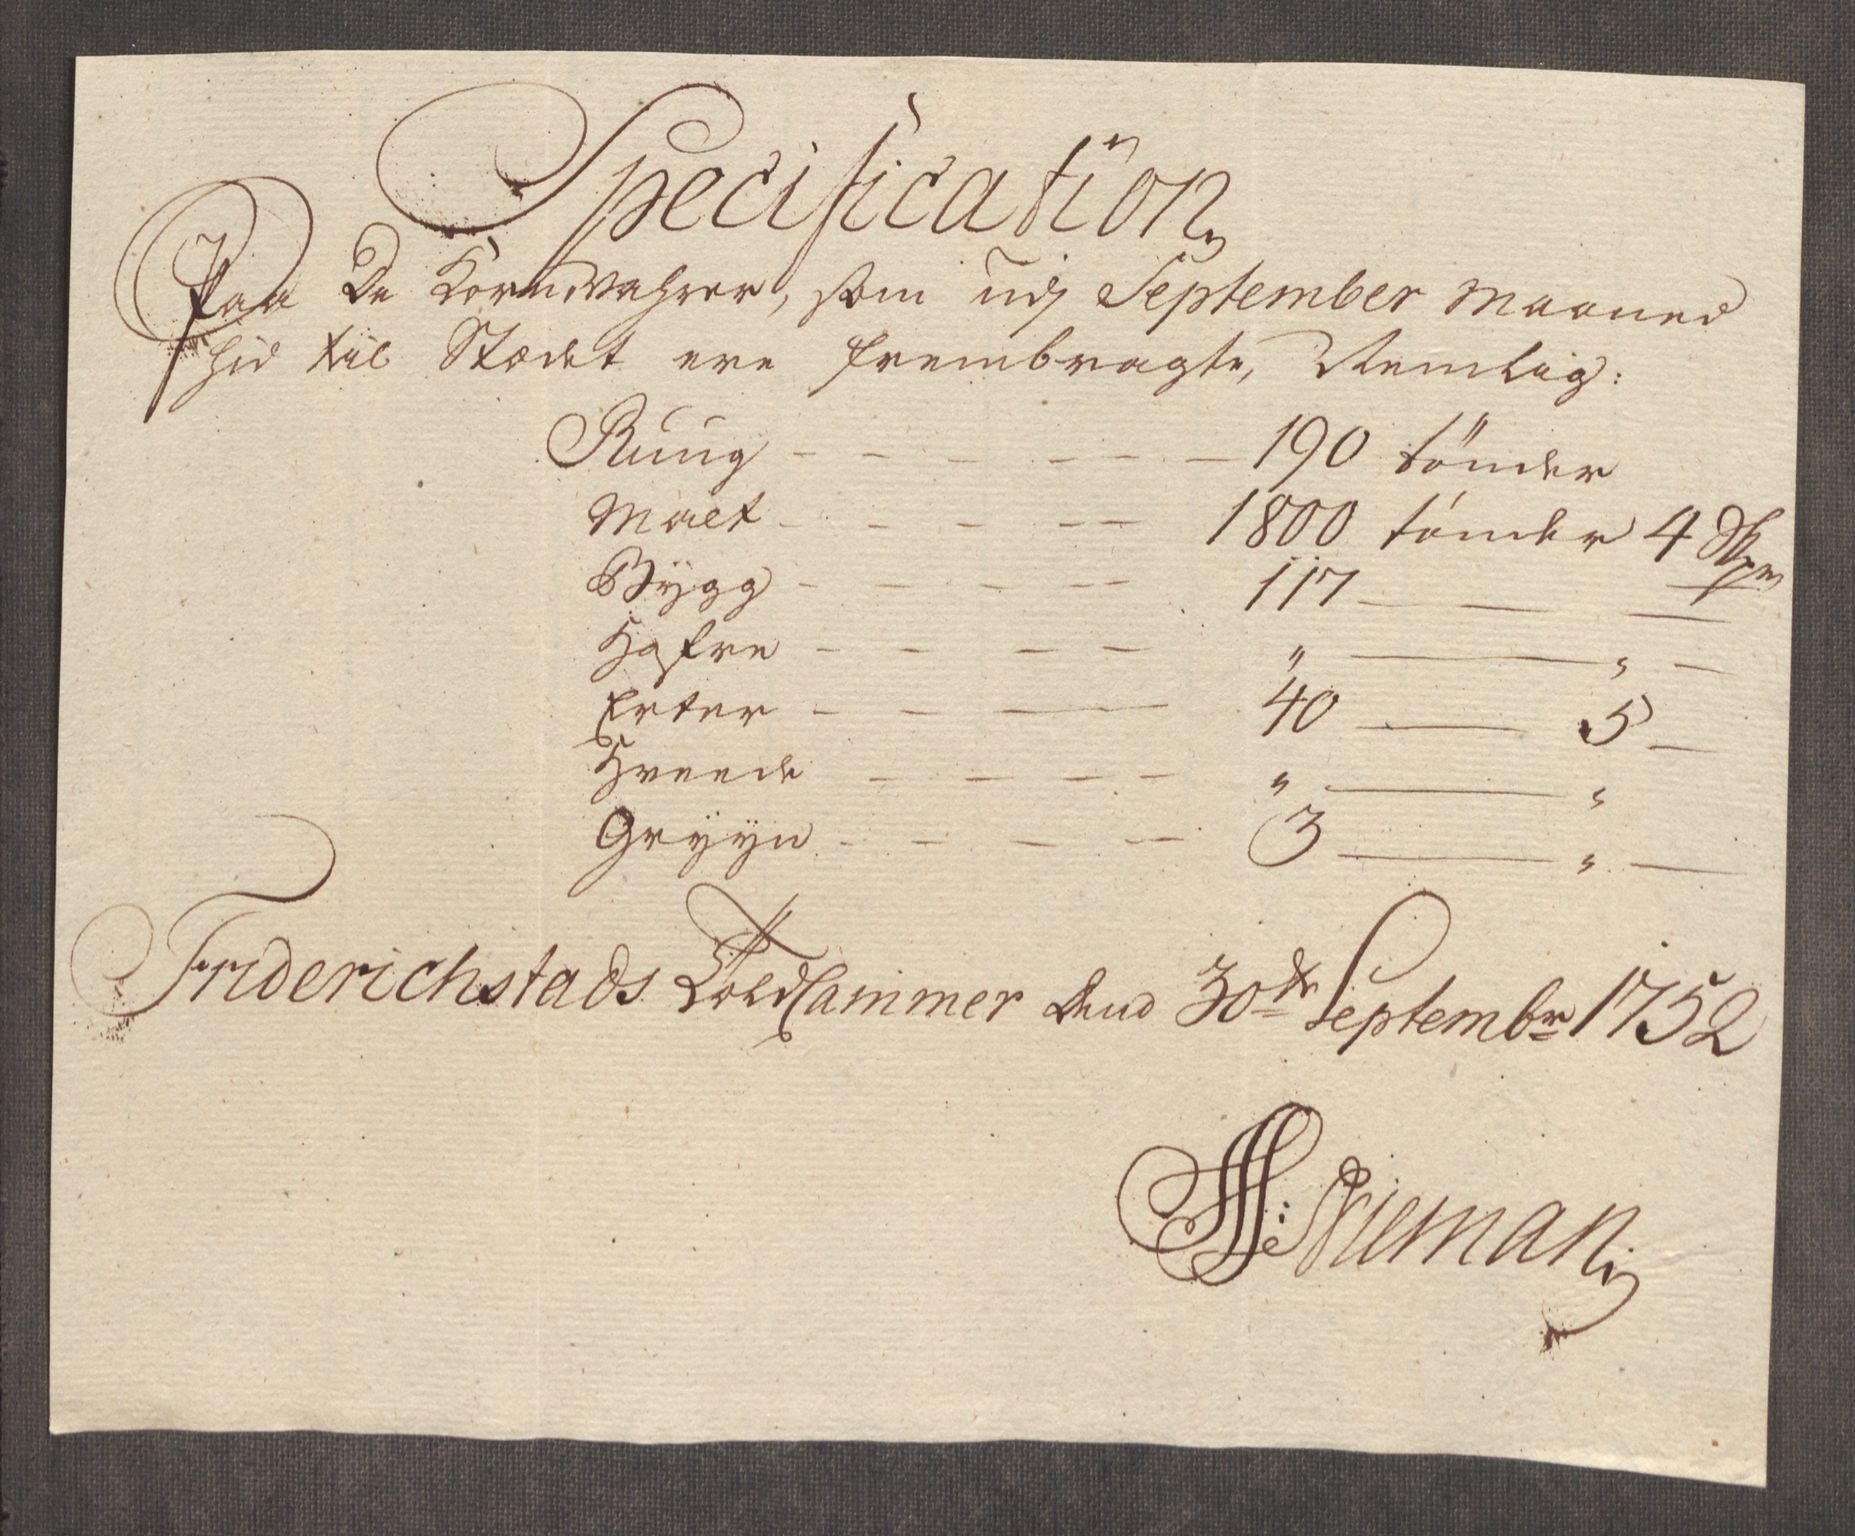 Specification
Paa De Kornwahrer, som udj September Maaned
hid til Stædet ere frembragte, Nemlig:
Ruug - - - - - - 190 tönder
Malt - - - - - 1800 tönder 4 Skpr
Bÿgg - - - - - 117 — — —
Hafre - - - - " — " —
Erter - - — 40 — 5 —
Hveede - - - - - " — "
Grÿÿn - - - - 3 — " —
Friderichstads Told Cammer Dend 30te Septembr 1752
Nieman